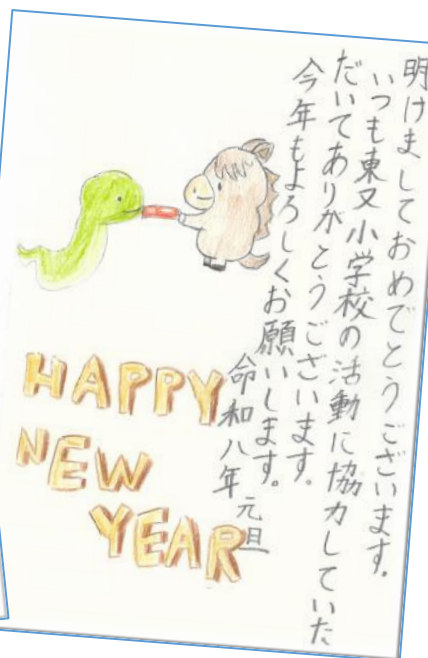 明けましておめでとうございます。
いつも東又小学校の活動に協力していた
だいてありがとうございます。
今年もよろしくお願いします。
令和八年 元旦
HAPPY
NEW
YEAR